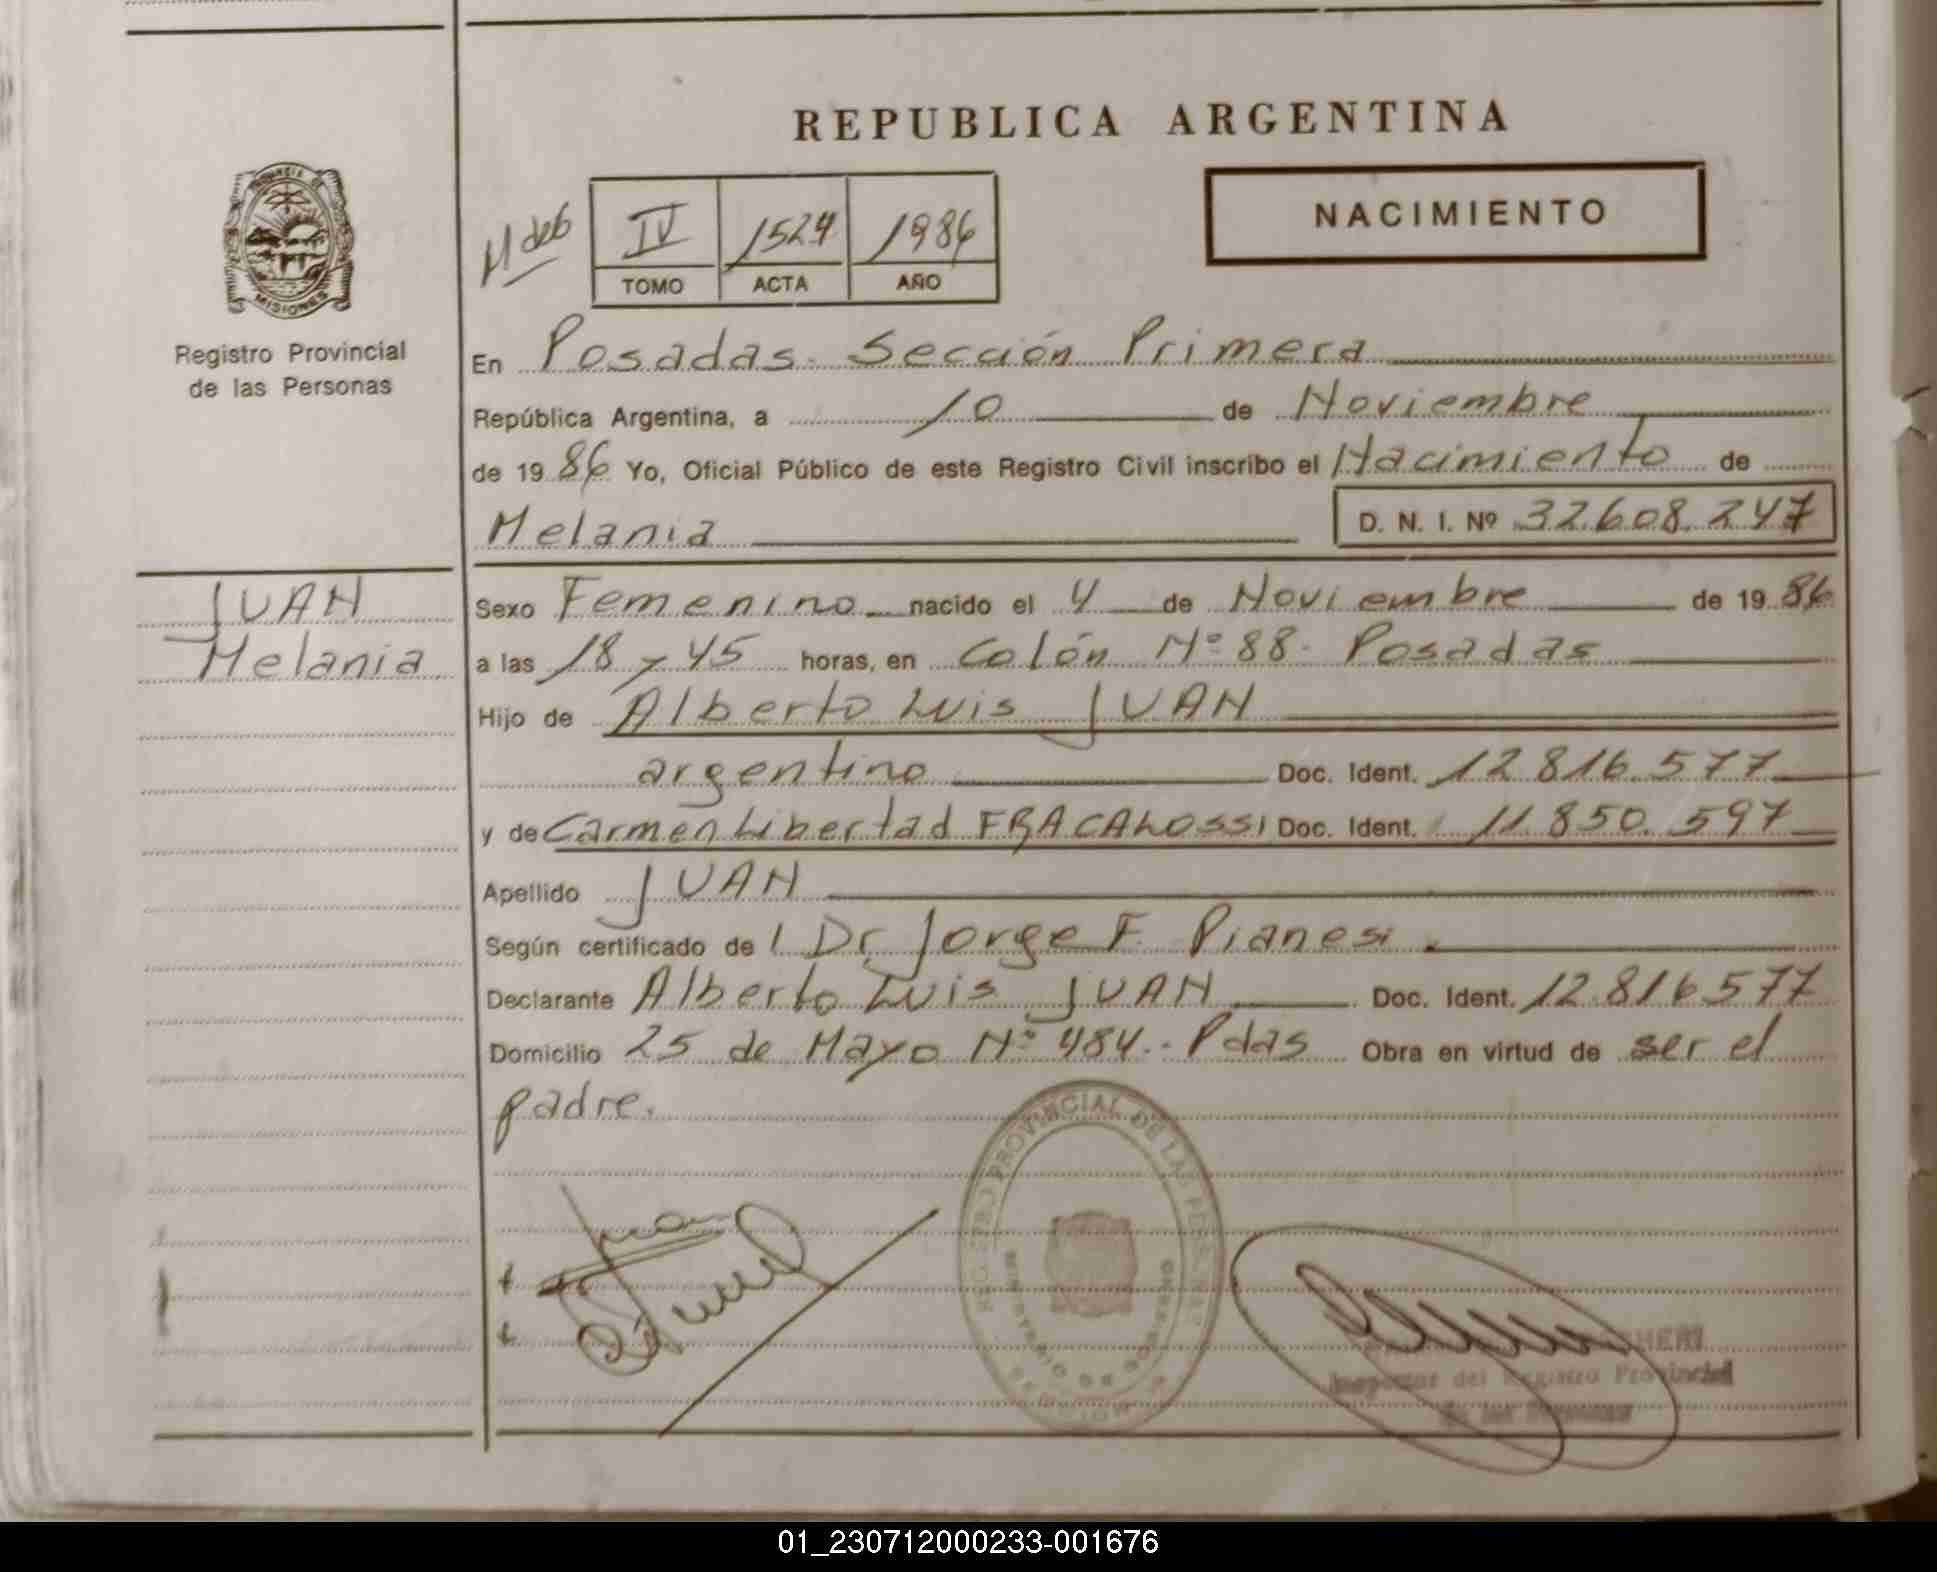 REPUBLICA ARGENTINA
PROVINCIA DE
MISIONES
Registro Provincial
de las Personas
IV 1524 1986
TOMO ACTA AÑO
NACIMIENTO
En Posadas. Sección Primera
República Argentina, a 10 de Noviembre
de 1986 Yo, Oficial Público de este Registro Civil inscribo el Nacimiento de
Melania D. N. I. Nº 32.608.247
JUAN
Melania
Sexo Femenino nacido el 4 de Noviembre de 1986
a las 18 y 45 horas, en Colón Nº 88. Posadas
Hijo de Alberto Luis JUAN
argentino Doc. Ident. 12.816.577
y de Carmen Libertad FRACALOSSI Doc. Ident. 11.850.597
Apellido JUAN
Según certificado de Dr. Jorge F. Pianesi
Declarante Alberto Luis JUAN Doc. Ident. 12.816577
Domicilio 25 de Mayo Nº 484.- Pdas Obra en virtud de ser el
padre.
PROVINCIAL DE LAS PERSONAS
MINISTERIO DE GOBIERNO
Inspector del Registro Provincial
de las Personas
01_230712000233-001676